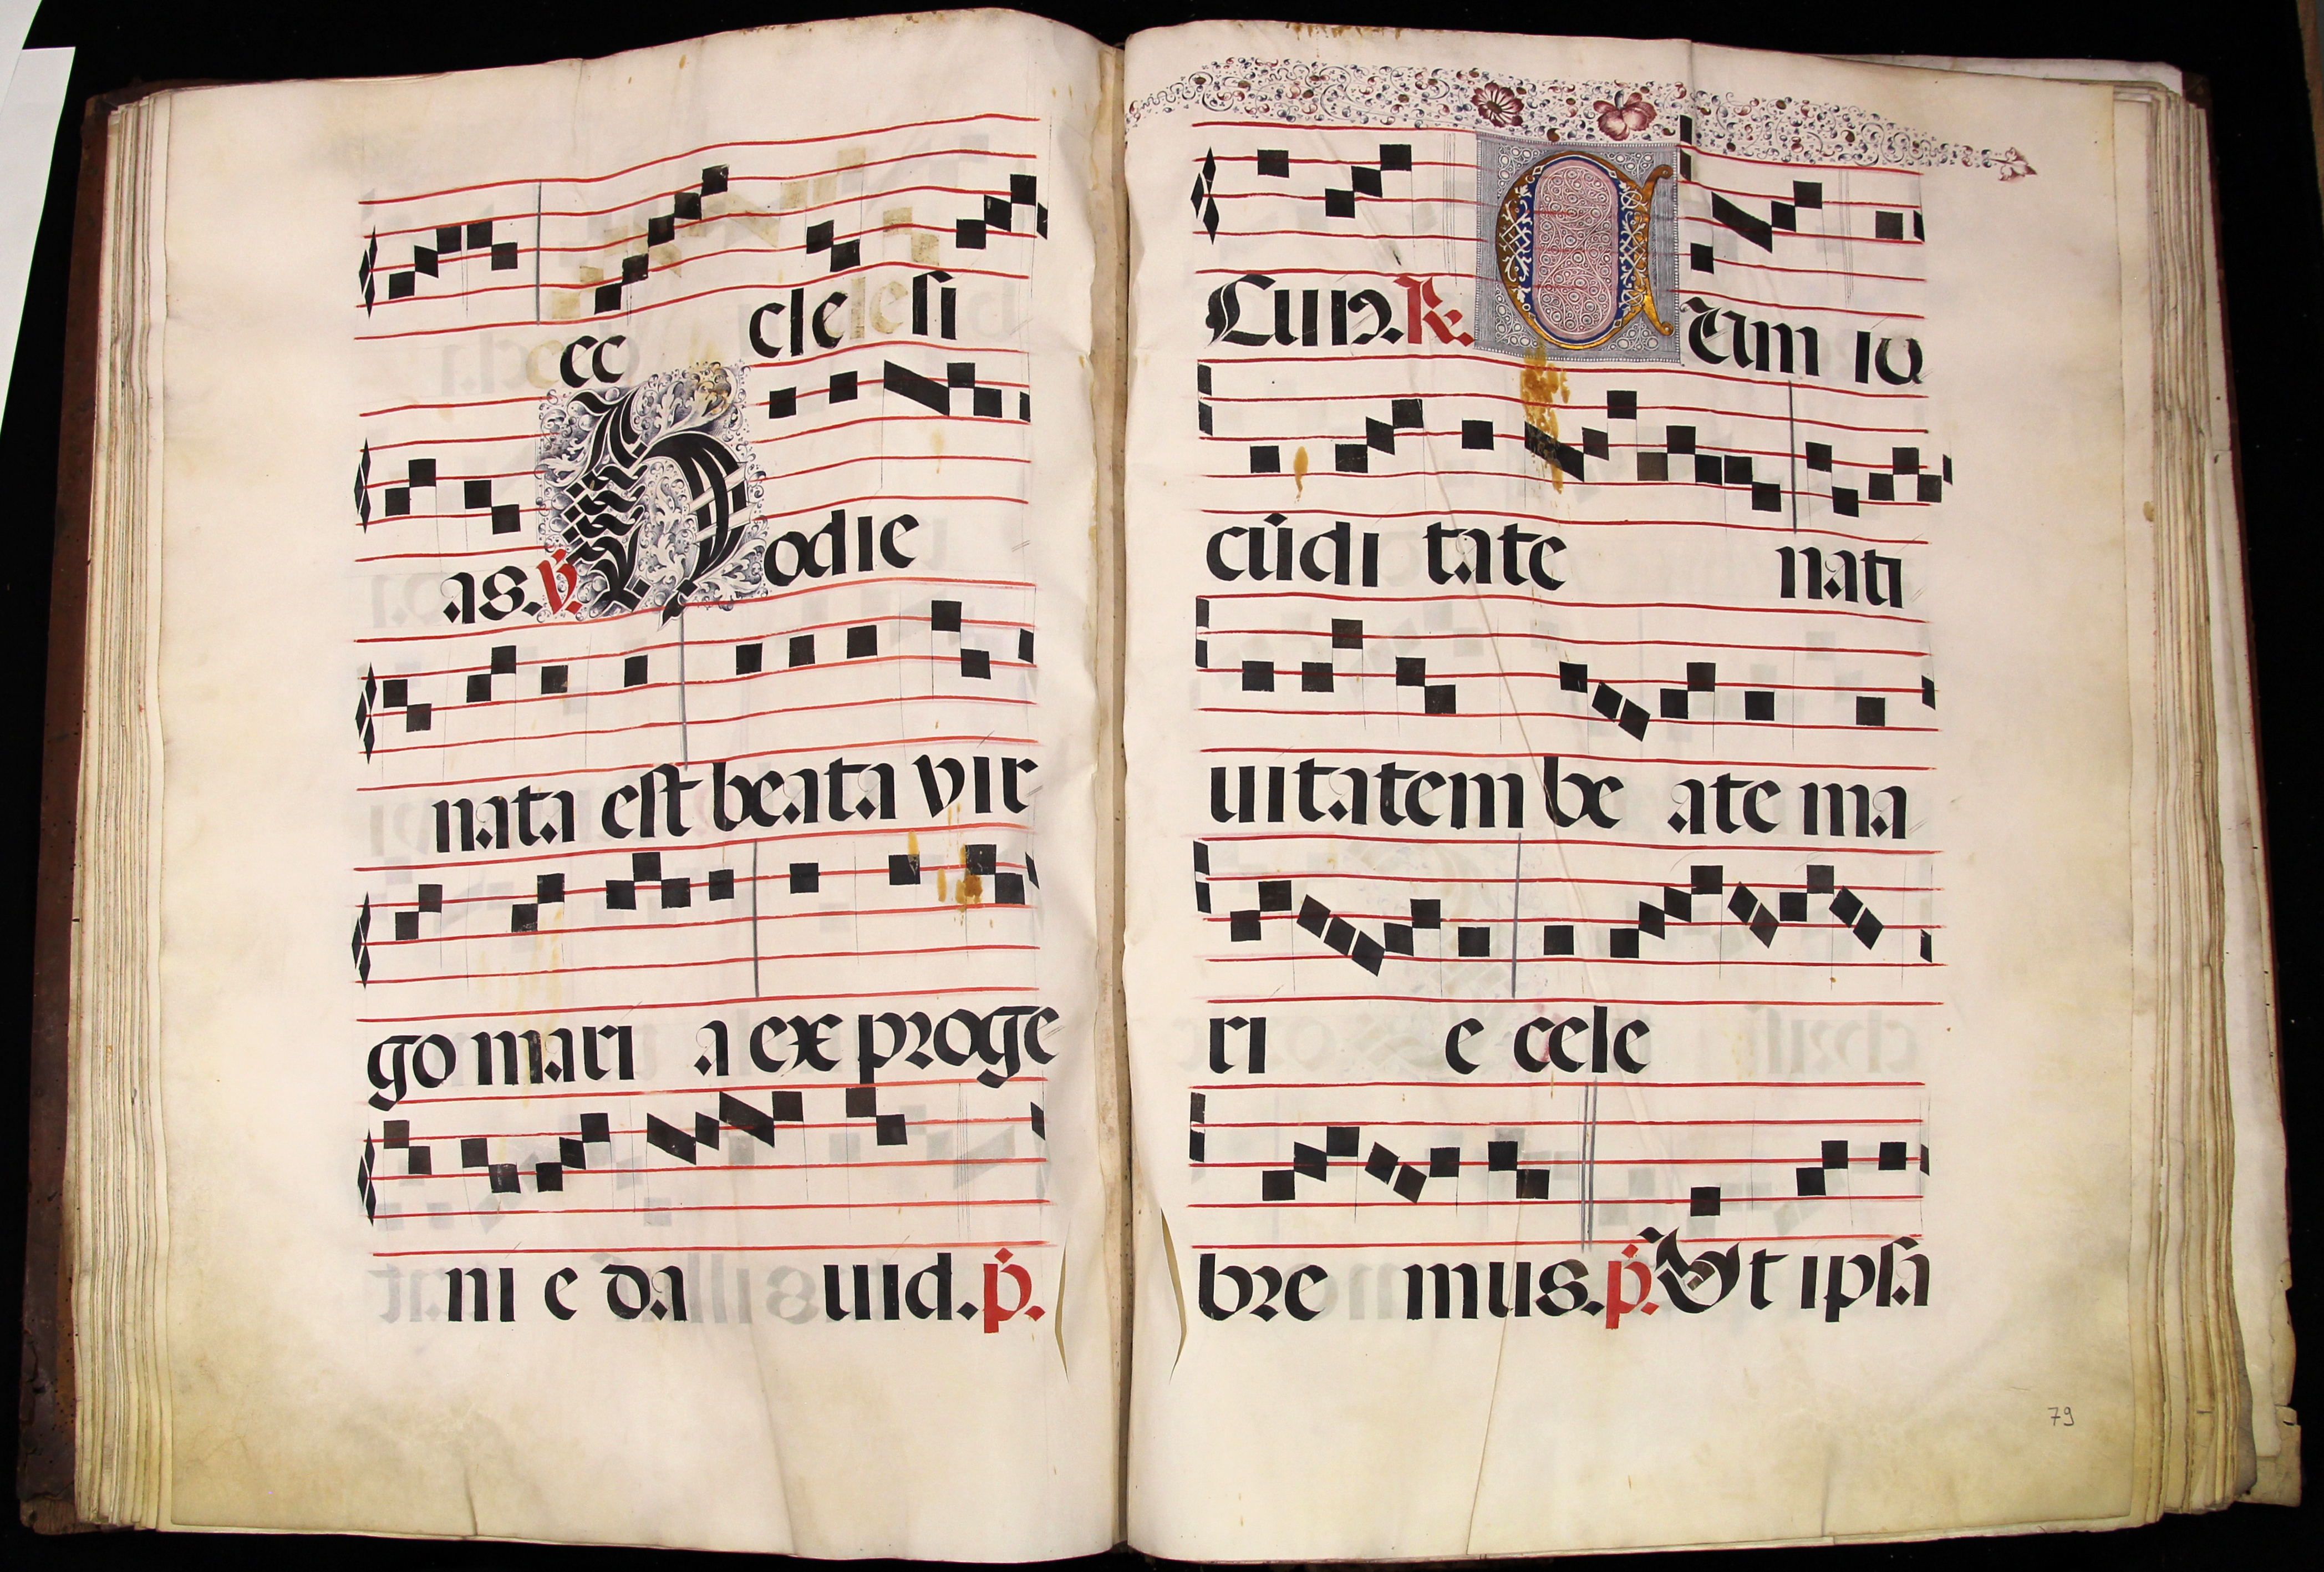 ec cle si
as. ℣. Hodie
nata est beata vir
go mari a ex proge
ni e da uid. p̊.
Cun. ℟. Cum io
cūdi tate nati
uitatem be ate ma
ri e cele
bre mus. p̊. Vt ipsa
79